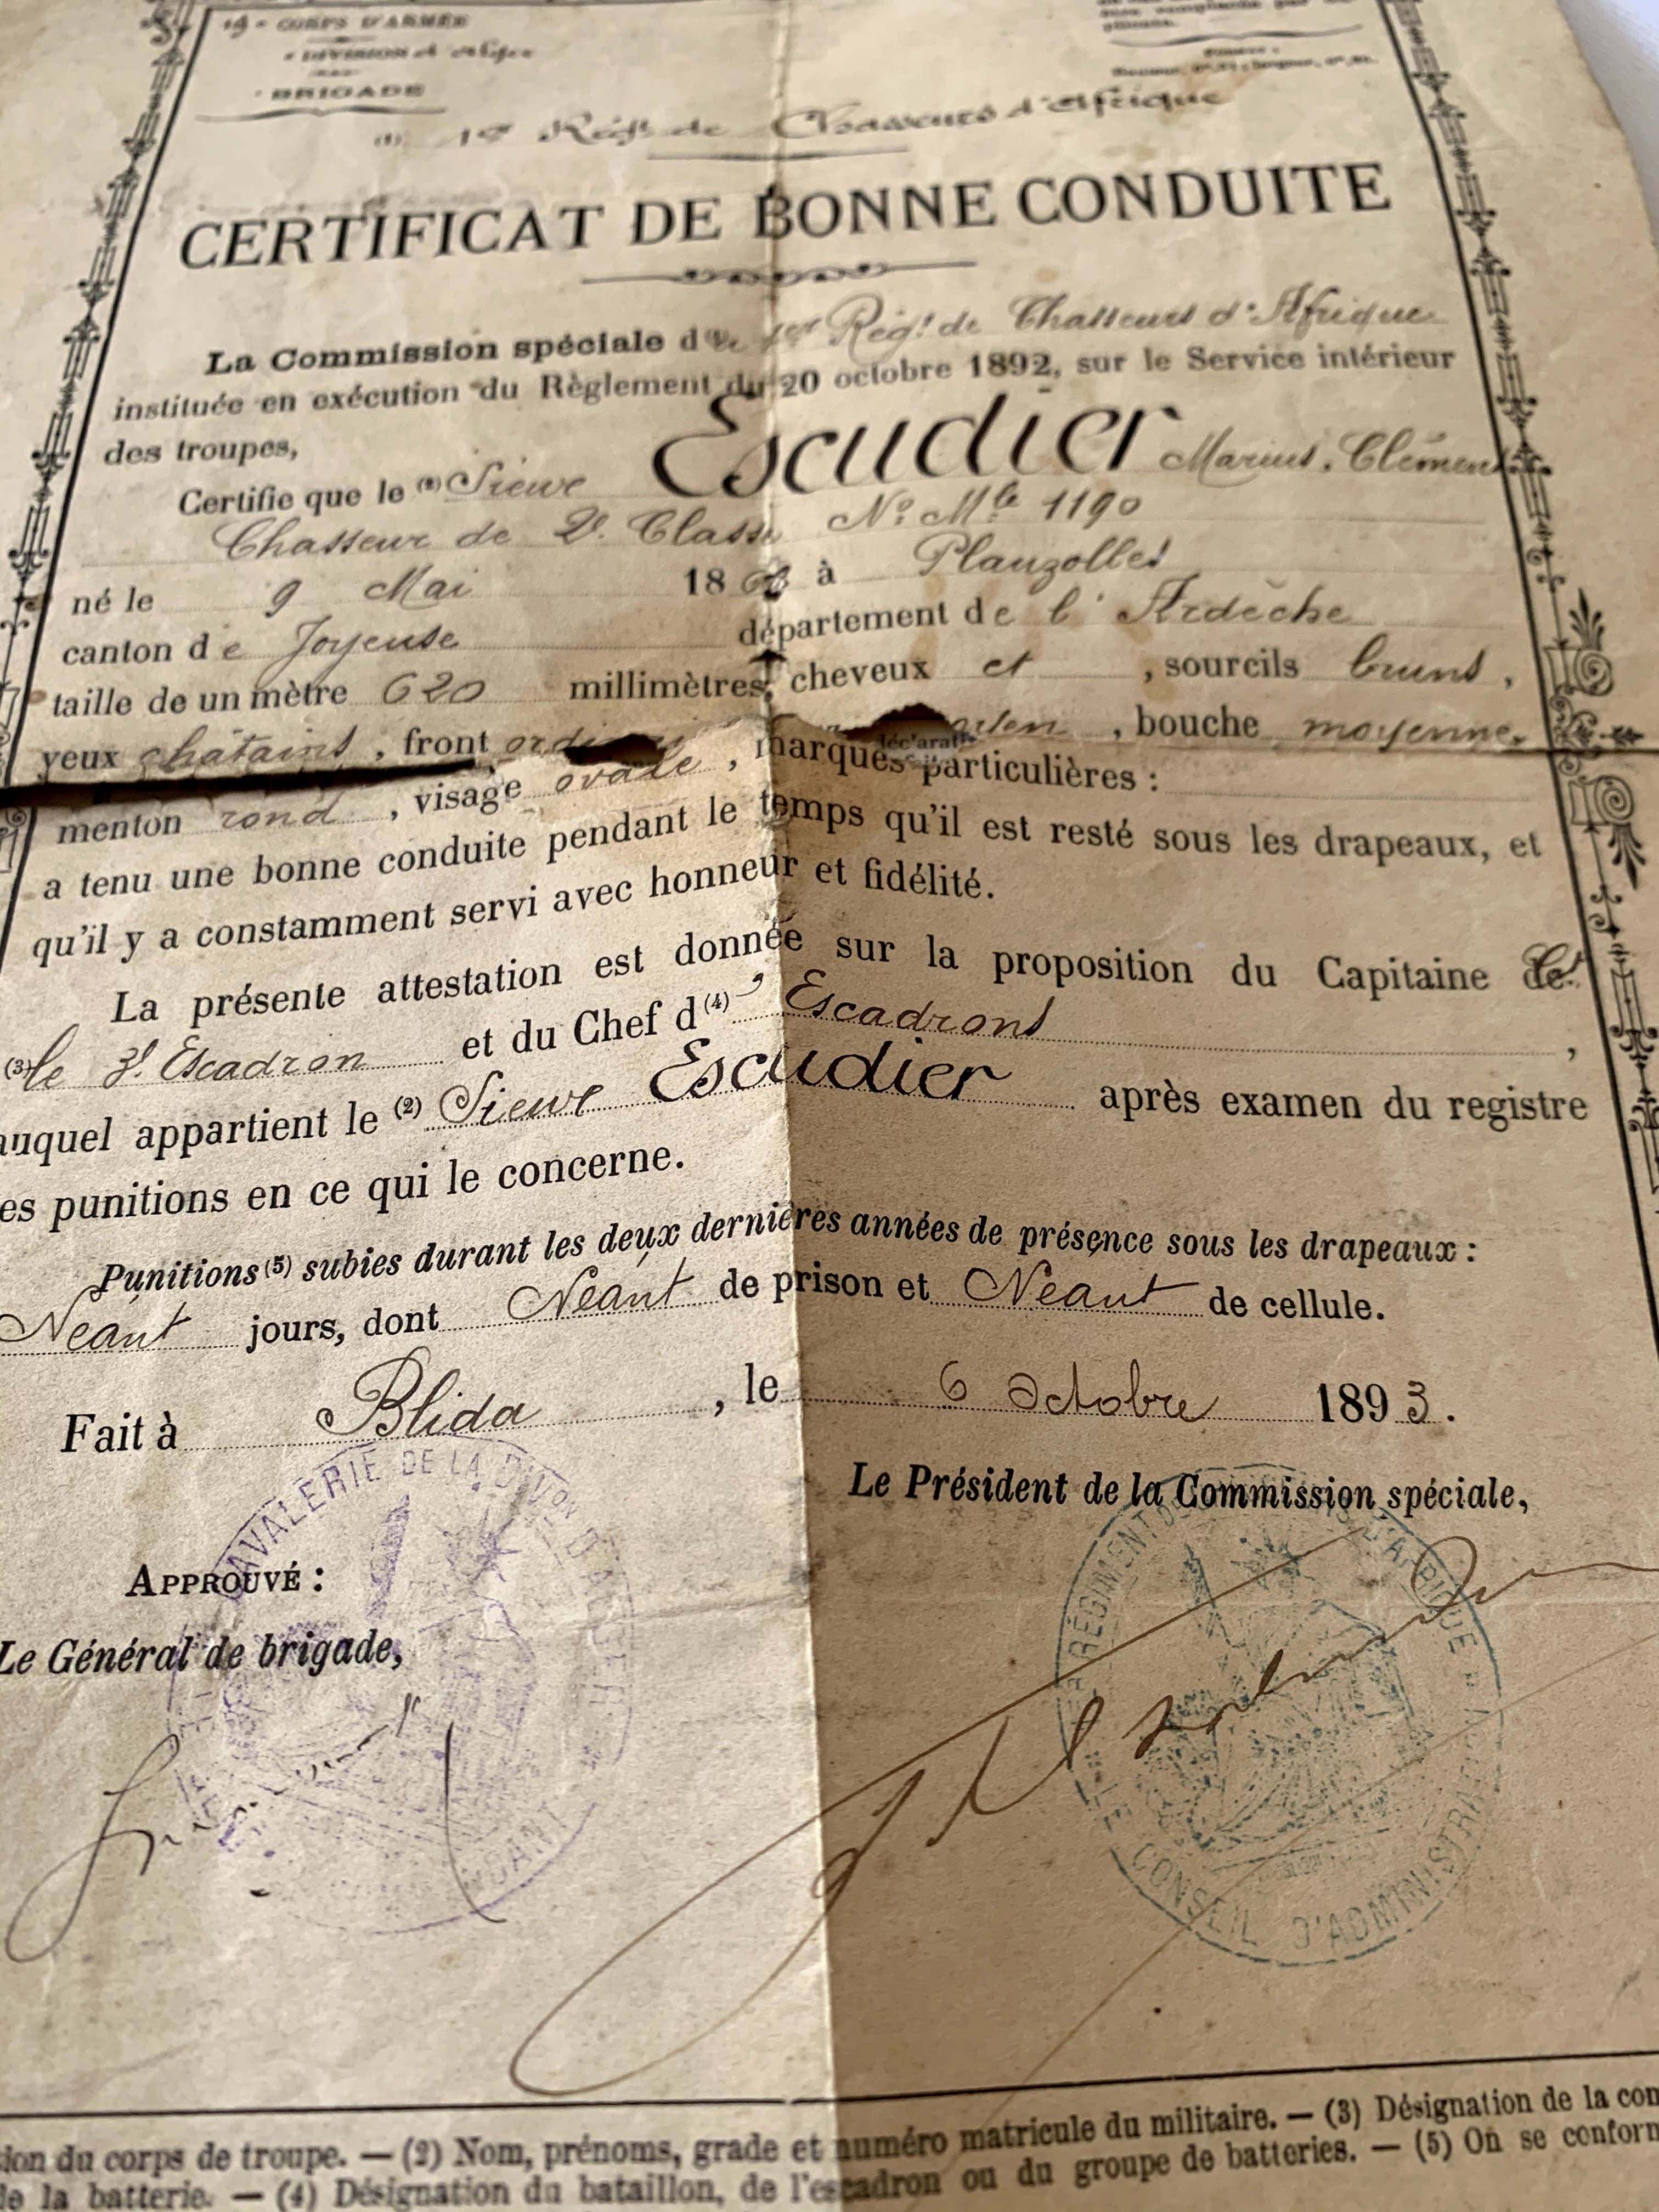 19e CORPS D'ARMÉE
DIVISION d'Alger
BRIGADE
(1) 1er Régt de Chasseurs d'Afrique
CERTIFICAT DE BONNE CONDUITE
La Commission spéciale du 1er Régt de Chasseurs d'Afrique
instituée en exécution du Règlement du 20 octobre 1892, sur le Service intérieur
des troupes,
Certifie que le (2) Sieur Escudier Marius, Clément
Chasseur de 2e Classe No Mle 1190
né le 9 Mai 18 à Planzolles
canton de Joyeuse département de l'Ardèche
taille de un mètre 620 millimètres, cheveux et , sourcils bruns,
yeux châtains, front , bouche moyenne,
menton rond, visage ovale, marques particulières :
a tenu une bonne conduite pendant le temps qu'il est resté sous les drapeaux, et
qu'il y a constamment servi avec honneur et fidélité.
La présente attestation est donnée sur la proposition du Capitaine Ct
(3) le 3e Escadron et du Chef d(4)'Escadrons ,
auquel appartient le (2) Sieur Escudier après examen du registre
es punitions en ce qui le concerne.
Punitions (5) subies durant les deux dernières années de présence sous les drapeaux :
Néant jours, dont Néant de prison et Néant de cellule.
Fait à Blida, le 6 Octobre 1893.
Le Président de la Commission spéciale,
APPROUVÉ :
Le Général de brigade,
CAVALERIE DE LA DIVon D'ALGER
RÉGIMENT D'AFRIQUE
LE CONSEIL D'ADMINISTRA
tion du corps de troupe. — (2) Nom, prénoms, grade et numéro matricule du militaire. — (3) Désignation de la com
de la batterie. — (4) Désignation du bataillon, de l'escadron ou du groupe de batteries. — (5) On se conform